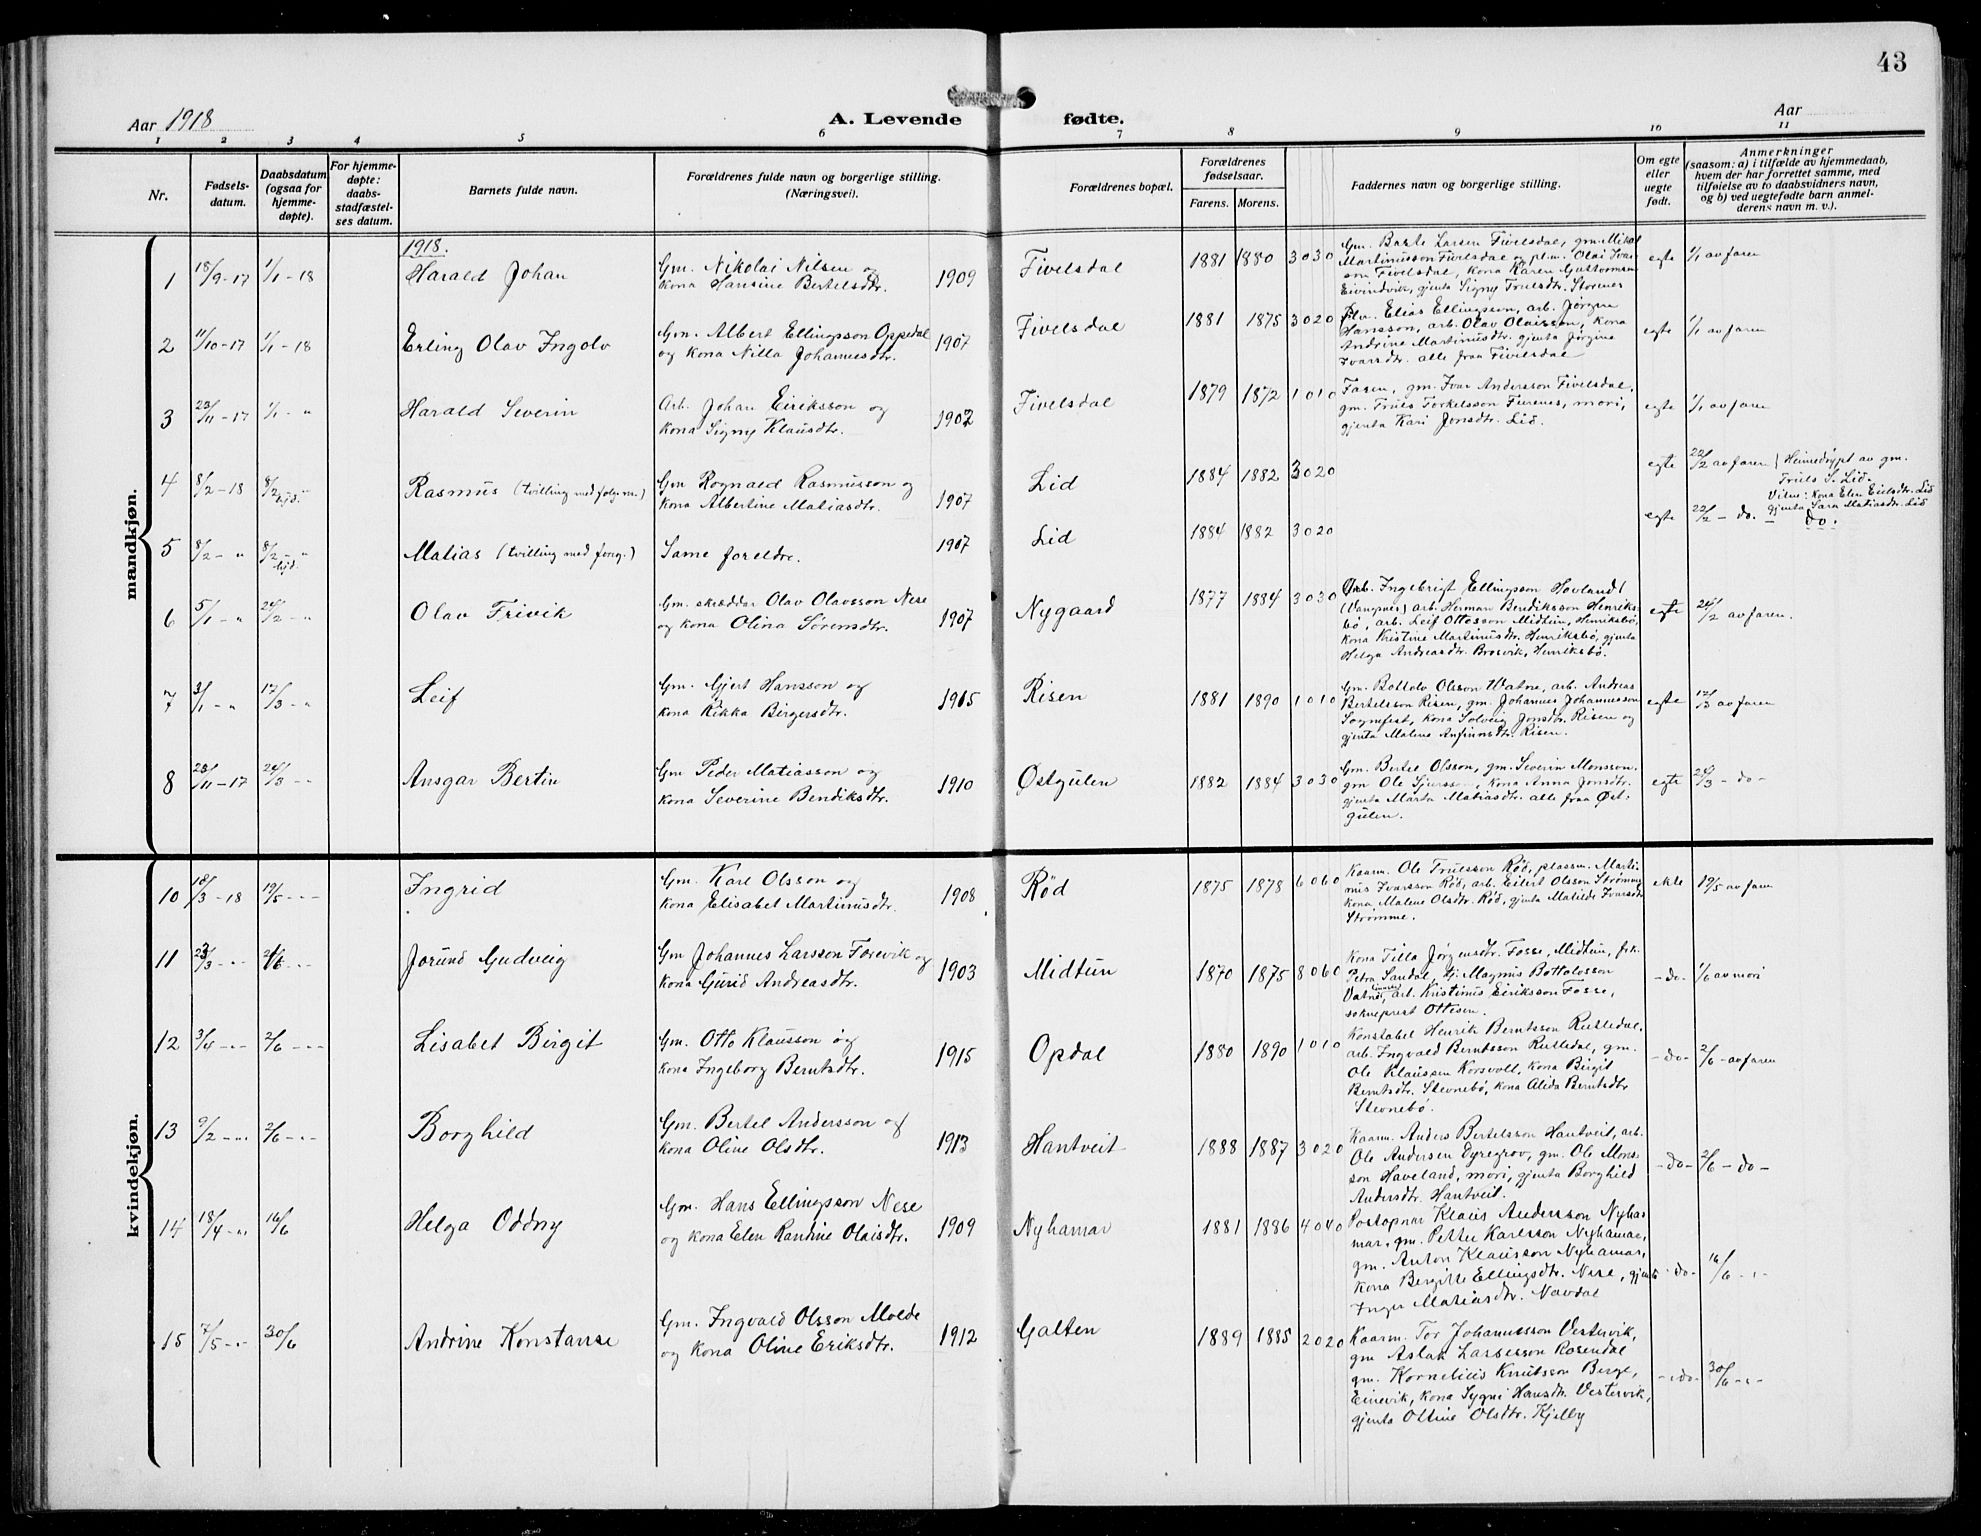 43
Aar 1918
A. Levende fødte.
Aar
1 2 3 4 5 6 7 8 9 10 11
Nr.
Fødsels-
datum.
Daabsdatum
(ogsaa for
hjemme-
døpte).
For hjemme-
døpte:
daabs-
stadfæstel-
ses datum.
Barnets fulde navn.
Forældrenes fulde navn og borgerlige stilling.
(Næringsvei).
Forældrenes bopæl.
Forældrenes
fødselsaar.
Farens. Morens.
Faddernes navn og borgerlige stilling.
Om egte
eller
uegte
født.
Anmerkninger
(saasom: a) i tilfælde av hjemmedaab,
hvem der har forrettet samme, med
tilføielse av to daabsvidners navn,
og b) ved uegtefødte barn anmel-
derens navn m. v.).
mandkjøn.
1918.
1 18/9-17 1/1-18 Harald Johan
Gm. Nikolai Nilsen og
kona Hansine Bertelsdtr. 1909
Fivelsdal 1881 1880 3 0 3 0
Gm. Barte Larsen Fivelsdal, gm. Mikal
Martinusson Fivelsdal og pl.m. Olai Ivar
son Fivelsdal, kona Karen
Eivindvik, gjenta Signy Trulsdtr. Storenes
egte 1/1 av faren
2 11/10-17 1/1-18 Erling Olav Ingolv
Gm. Albert Ellingsson Oppedal
og kona Nilla Johannesdtr. 1907
Fivelsdal 1881 1875 3 0 2 0
Elias Ellingsson, arb. Jørgine
Hansson, arb. Olav Olaisson, kona
Andrine Martinusdtr. gjenta Jørgine
Ivarsdtr. alle fraa Fivelsdal
egte 1/1 av faren
3 23/11-17 1/1 - " Harald Severin
Arb. Johan Eiriksson og
kona Signy Klausdtr. 1902
Fivelsdal 1879 1872 1 0 1 0
Faren, gm. Ivar Andersson Fivelsdal,
gm. Truls Torkelsson Furenes, mori,
gjenta Kari Jonsdtr. Lid.
egte 1/1 av faren
4 8/2-18 8/2 hjd. Rasmus (tvilling med følgjn.)
Gm Rognald Rasmusson og
kona Albertine Matiasdtr. 1907
Lid 1884 1882 3 0 2 0
egte 22/2 av faren / Heimedøypt av gm.
Truls S. Lid.
Vitne: kona Elen Eielsdtr. Lid
gjenta Sara Matiasdtr. Lid
5 8/2 - " 8/2 - " hjd. Matias (tvilling med forig.)
Same foreldre. 1907
Lid 1884 1882 3 0 2 0
egte 22/2 - do. - do.
6 5/1 - " 24/2 - " Olav Frivik
Gm. skræddar Olav Olavsson Nese
og kona Olina Sørensdtr. 1907
Nygaard 1877 1884 3 0 3 0
Arb. Ingebrigt Ellingson Hovland
(Vangnes) arb. Herman Bendiksson Henriks-
bø, arb. Leif Ottosson Midtun, Henriksbø,
kona Kristine Martinusdtr. Henriksbø, gjenta
Helga Andreasdtr. Brosvik, Henriksbø.
egte 24/2 av faren.
7 3/1 - " 17/3 - " Leif
Gm. Gjert Hansson og
kona Rikka Birgersdtr. 1915
Risen 1881 1890 1 0 1 0
Gm. Bottolv Olsson Watne, arb. Andreas
Bertelsson Risen, gm. Johannes Johannesson
Sognfest, kona Solveig Jonsdtr. Risen og
gjenta Malene Anfinnsdtr. Risen.
egte 17/3 av faren
8 23/11-17 24/3 - " Ansgar Bertin
Gm Peder Matiasson og
kona Severine Bendiksdtr. 1910
Østgulen 1882 1884 3 0 3 0
Gm. Bertel Olsson, gm. Severin Monsson.
gm Ole Sjursson, kona Anna Jonsdtr.
gjenta Marta Matiasdtr. alle fraa Øst-
gulen.
egte 24/3 - do -
kvindekjøn.
10 18/3-18 19/5 - - - Ingrid
Gm. Karl Olsson og
kona Elisabet Martinusdtr. 1908
Rød 1875 1878 6 0 6 0
Kaarm. Ole Trulsson Rød, plassm. Marti-
nus Ivarsson Rød, arb. Eilert Olsson Strømme
kona Malene Olsdtr. Rød, gjenta Matilde Ivarsdtr
Strømme.
ekte 19/5 av faren
11 23/3 - - 2/6 - - Jorund Gudveig
Gm Johannes Larsson Forevik og
kona Gurid Andreasdtr. 1903
Midtun 1870 1875 8 0 6 0
Kona Tilla Jørgensdtr. Fosse, Midtun, frk.
Petra Sandal, tj. Magnus Bottolvsson
Vatne, arb. Kristinus Eiriksson Fosse,
sokneprest Ottesen.
- do - 1/6 av mori
12 3/4 - - 2/6 - - - Lisabet Birgit
Gm. Otto Klausson og
kona Ingeborg Berntsdtr. 1915
Opdal 1880 1890 1 0 1 0
Konstabel Henrik Berntsson Rutledal,
arb. Ingvald Berntsson Rutledal, gm.
Ole Klaussen Korsvoll, kona Birgit
Berntsdtr. Stevnebø, kona Alida Berntsdtr
Stevnebø.
- do - 2/6 - av faren
13 9/2 - - 2/6 - - Borghild
Gm. Bertel Andersson og
kona Oline Olsdtr. 1913
Hantveit 1888 1887 3 0 2 0
Kaarm. Anders Bertelsson Hantveit, arb.
Ole Andersen Eyregrov, gm. Ole Mons-
son Haveland, mori, gjenta Borghild
Andersdtr. Hantveit.
- do - 2/6 - do -
14 18/4 - " 16/6 Helga Oddny
Gm. Hans Ellingsson Nese
og kona Elen Randine Olaisdtr. 1909
Nyhamar 1881 1886 4 0 4 0
Postopnar Klaus Andersson Nyha-
mar, gm. Petter Karlsson Nyhamar,
gm. Anton Klausson Nyhamar,
kona Bergitte Ellingsdtr. Nese, gjenta
Inger Matiasdtr. Navdal
- do - 16/6 - " -
15 7/5 - - 30/6 Andrine Konstanse
Gm. Ingvald Olsson Molde
og kona Oline Eriksdtr. 1912
Galten 1889 1885 2 0 2 0
Kaarm. Tor Johannesson Vestervik,
gm Aslak Larsesson Rosendal
gm. Kornelius Knutsson Berge,
Einevik, kona Sygni Hansdtr. Vestervik,
gjenta Oltine Olsdtr. Kjelby
- do - 30/6 - " -